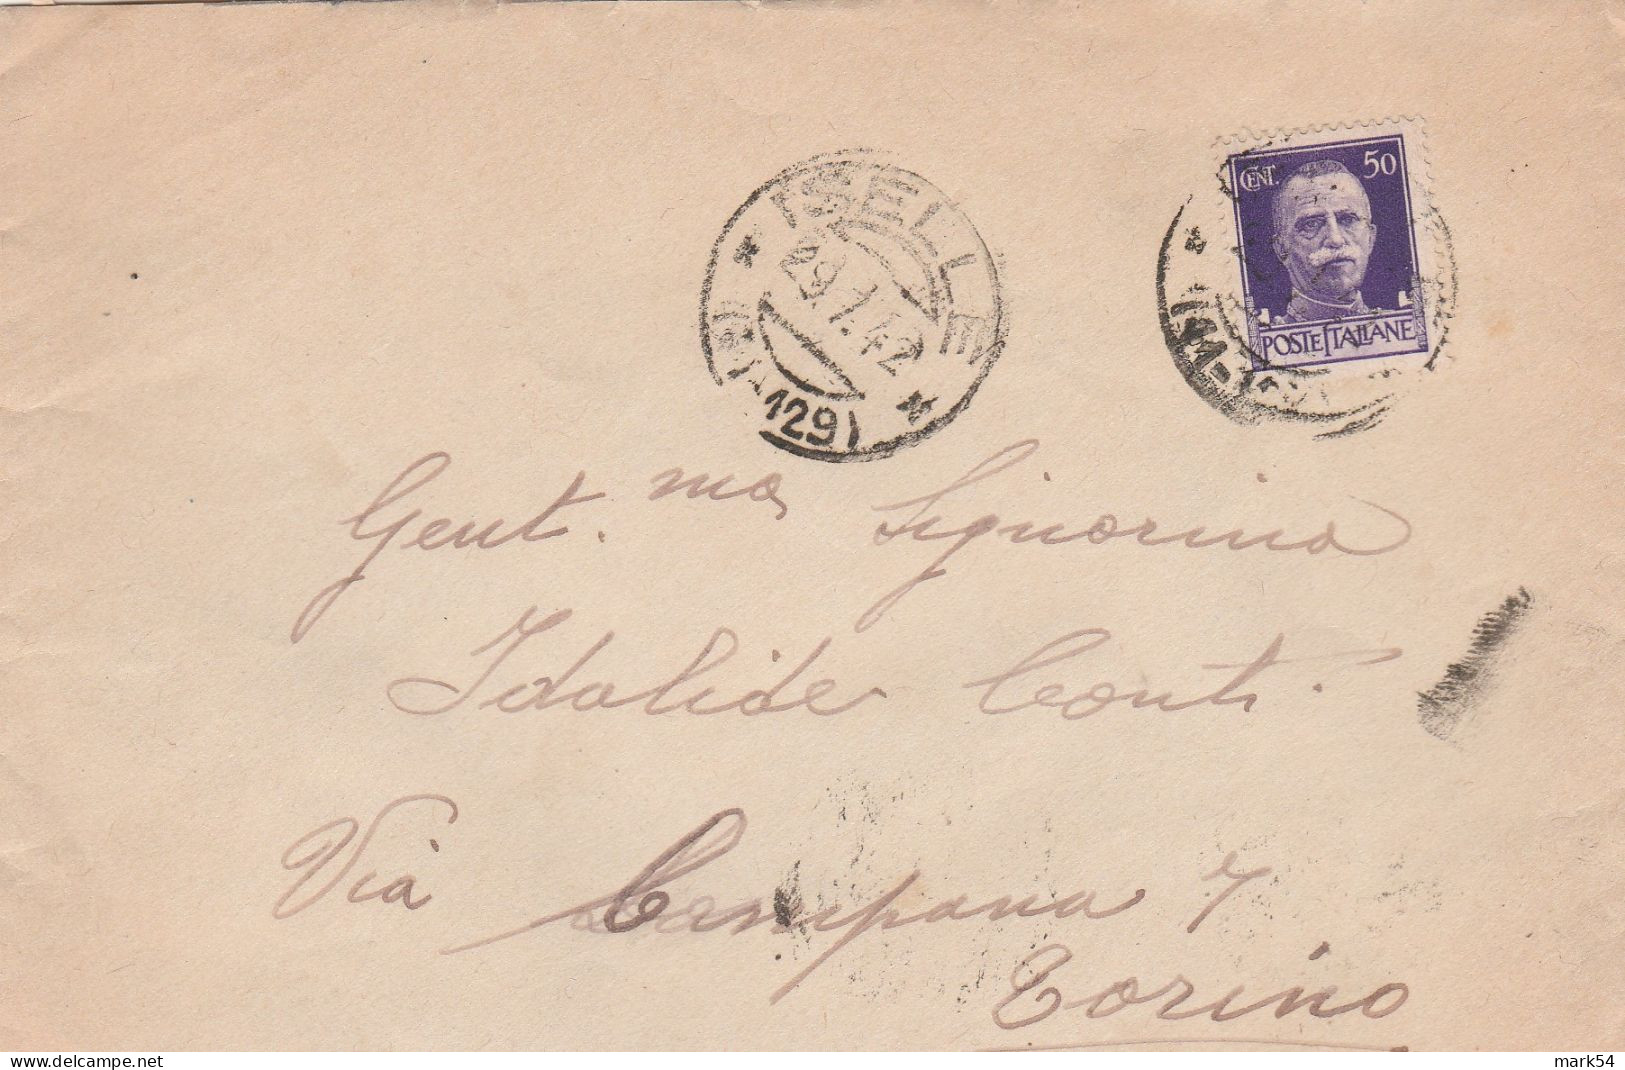 CENT. 50
POSTE ITALIANE
ISELLE
29.7.42
(129)
Gent.ma Signorina
Idalide Conti
Via Campana 7
Torino
www.delcampe.net
mark54